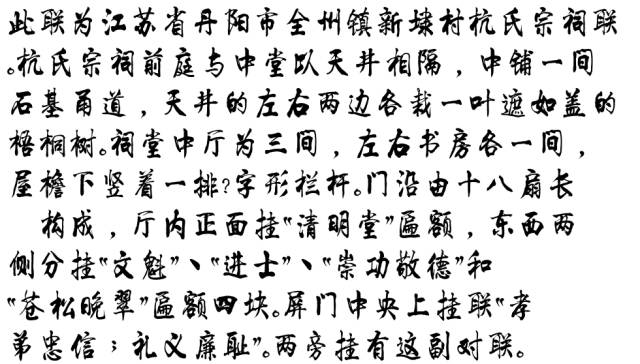 此联为江苏省丹阳市全州镇新埭村杭氏宗祠联
。杭氏宗祠前庭与中堂以天井相隔，中铺一间
石基甬道，天井的左右两边各栽一叶遮如盖的
梧桐树。祠堂中厅为三间，左右书房各一间，
屋檐下竖着一排?字形栏杆。门沿由十八扇长
构成，厅内正面挂“清明堂”匾额，东西两
侧分挂“文魁”、“进士”、“崇功敬德”和
“苍松晚翠”匾额四块。屏门中央上挂联“孝
弟忠信；礼义廉耻”。两旁挂有这副对联。